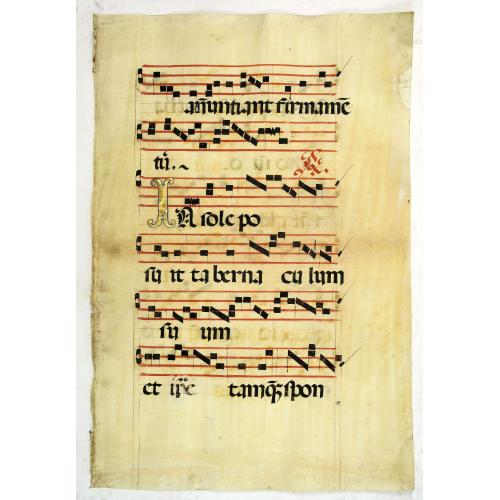 anūntiant firmamē
tū.
IN sole po
suit taberna culum
suum
et ip̄e tamq̄ spon